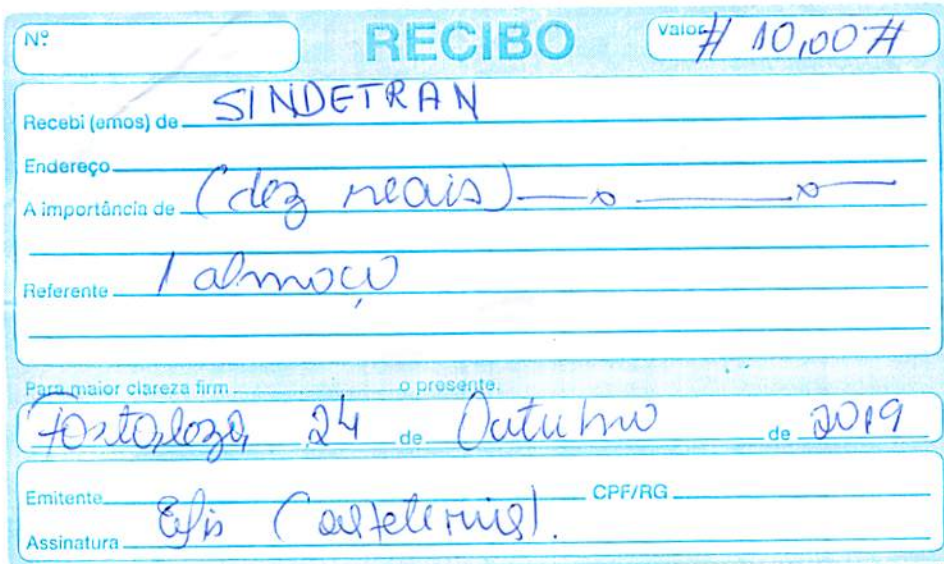 Nº RECIBO Valor # 10,00 #
Recebi (emos) de SINDETRAN
Endereço
A importância de (dez reais)
Referente 1 almoço
Para maior clareza firm o presente.
Fortaleza, 24 de Outubro de 2019
Emitente CPF/RG
Assinatura